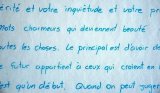 érité et votre inquiétude et votre pr
Mots charmeurs qui deviennent beauté
outes les choses. Le principal est d'avoir de
e futur appartient à ceux qui croient en
est qu'un début. Quand on peut